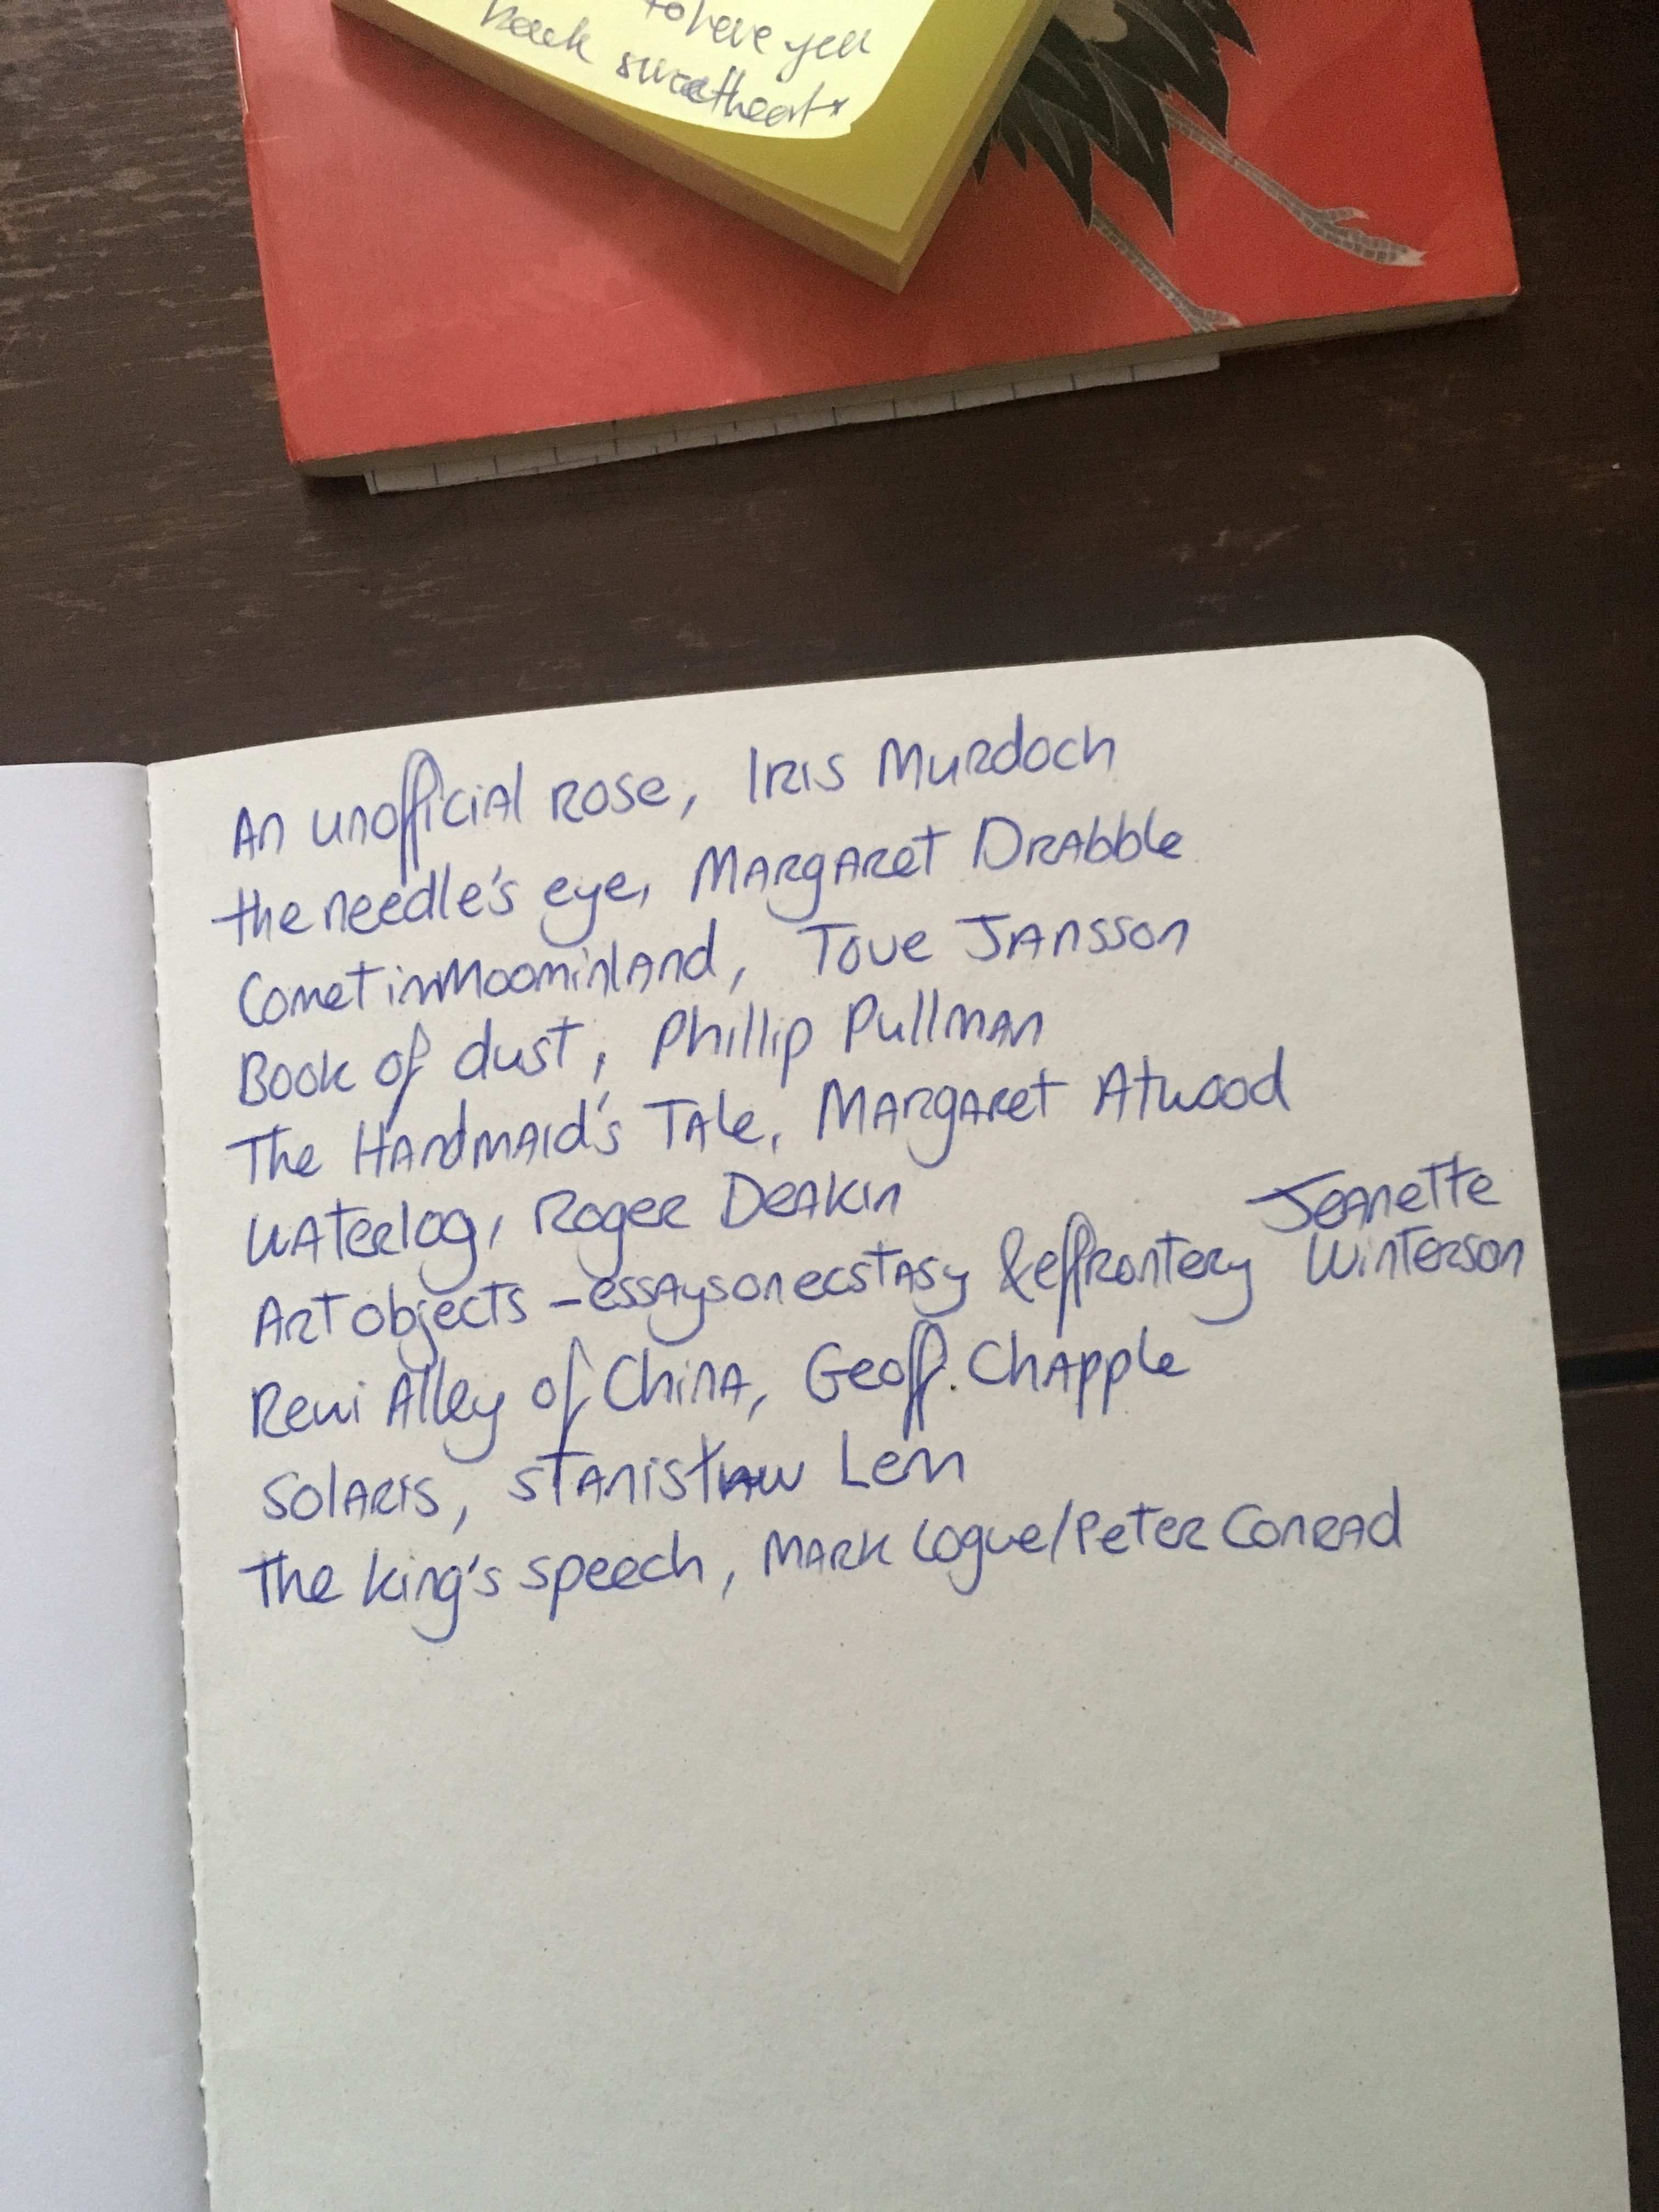 to have you
back sweetheart x
An unofficial rose, Iris Murdoch
the needle's eye, Margaret Drabble
Comet in Moominland, Tove Jansson
Book of dust, Phillip Pullman
The Handmaid's Tale, Margaret Atwood
Waterlog, Roger Deakin
Art objects - essays on ecstasy & effrontery Jeanette Winterson
Rewi Alley of China, Geoff. Chapple
Solaris, Stanisław Lem
The king's speech, Mark Logue/Peter Conrad